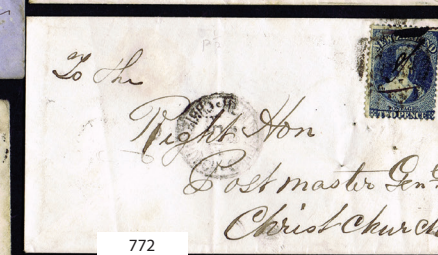 To the
Right Hon
Postmaster Genl
Christchurch
TWO PENCE
772